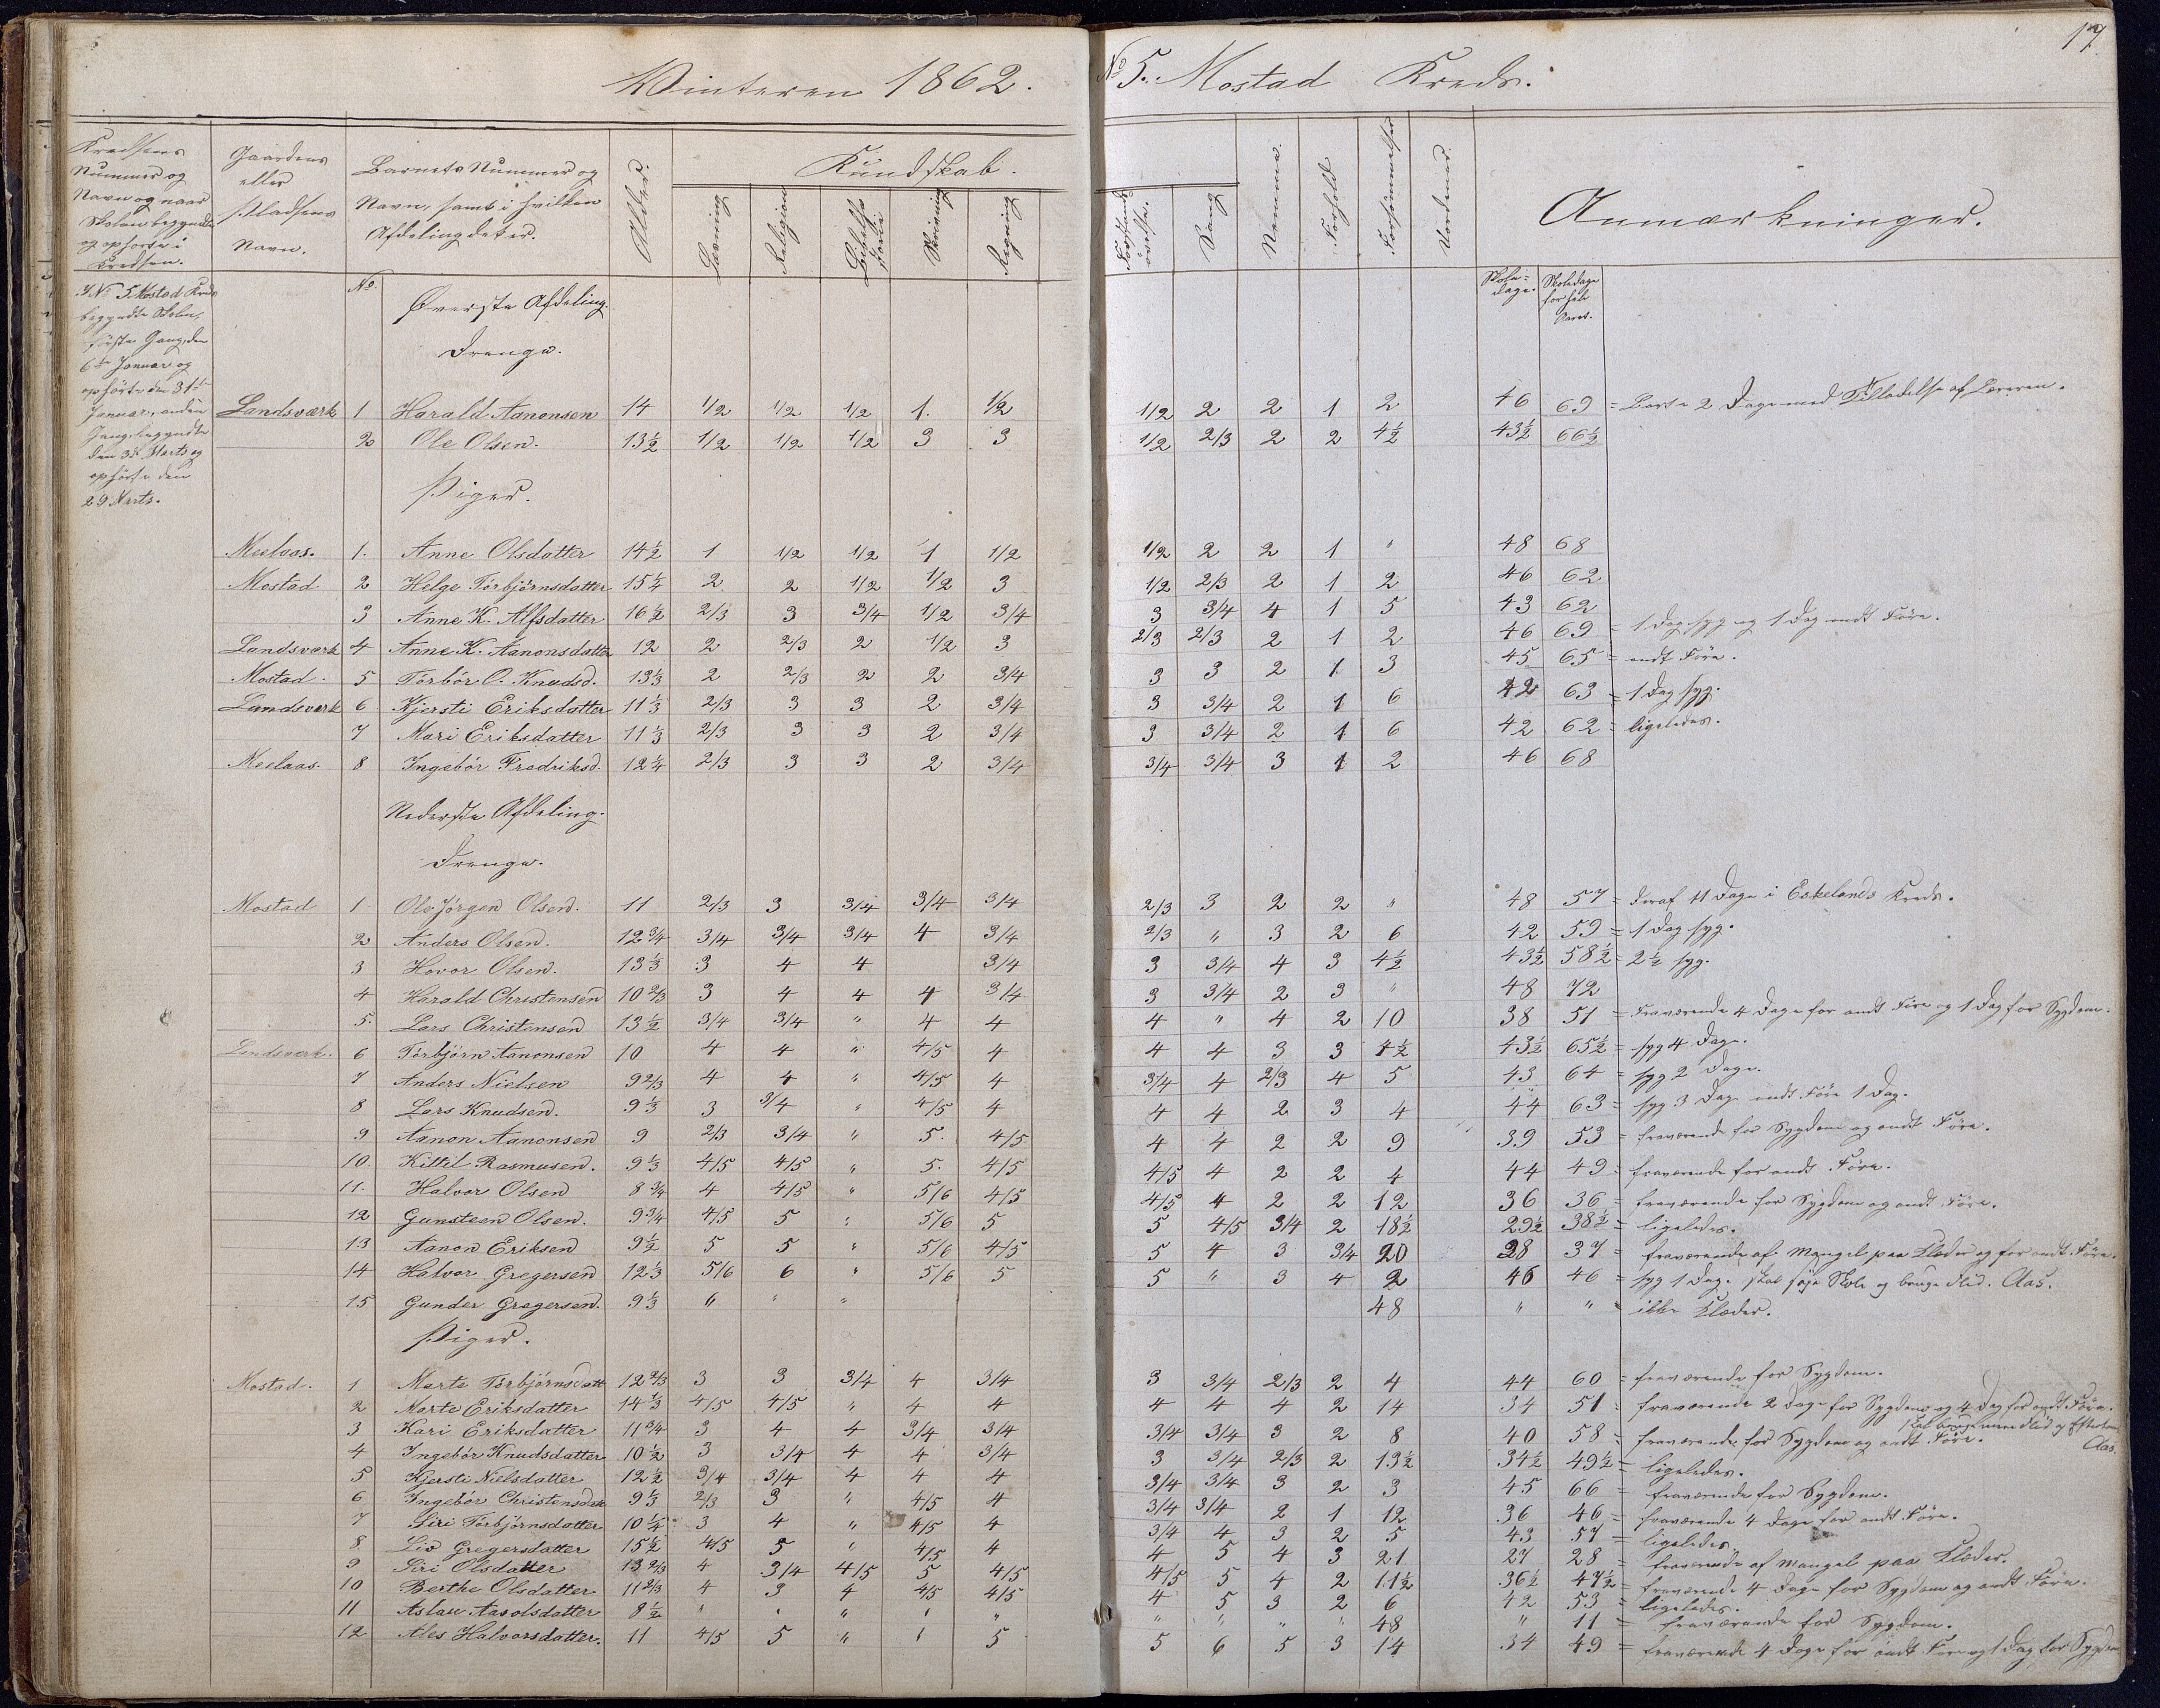 17
Vinteren 1862. No 5. Mostad Kreds.
Kredsens Nummer og Navn og naar Skolen begyndte og ophørte i Kredsen.
Gaardens eller Pladsens Navn.
Barnets Nummer og Navn, samt i hvilken Afdeling det er.
Alder.
Kundskab.
Læsning
Religion
Skrivning
Regning
Sang
Nemme.
Forhold
Forsømmelser
Anmærkninger.
I No 5 Mostad Kreds
begyndte Skolen,
første Gang, den
6te Januar og
ophørte den 31te
Januar, anden
Gang, begyndte
den 3de Marts og
ophørte den
29 Marts.
No
Skole-dage. Skoledage for hele Aaret.
Øverste Afdeling.
Drenge.
Landsværk 1 Harald Aanonsen 14 1/2 1/2 1/2 1. 1/2 1/2 2 2 1 2 46 69 = Borte 2 Dage med Tilladelse af Læreren.
2 Ole Olsen. 13½ 1/2 1/2 1/2 3 3 1/2 2/3 2 2 4½ 43½ 66½
Piger.
Meelaas. 1. Anne Olsdatter 14½ 1 1/2 1/2 1 1/2 1/2 2 2 1 " 48 68
Mostad 2 Helge Torbjörnsdatter 15¼ 2 2 1/2 1/2 3 1/2 2/3 2 1 2 46 62
3 Anne K. Alfsdatter 16½ 2/3 3 3/4 1/2 3/4 3 3/4 4 1 5 43 62
Landsværk 4 Anne K. Aanonsdatter 12 2 2/3 2 1/2 3 2/3 2/3 2 1 2 46 69 = 1 Dag syg og 1 Dag ondt Føre.
Mostad. 5 Torbör O. Knudsd. 13⅓ 2 2/3 2 2 3/4 3 3 2 1 3 45 65 = ondt Føre.
Landsværk 6 Kjersti Eriksdatter 11⅓ 2/3 3 3 2 3/4 3 3/4 2 1 6 42 63 = 1 Dag syg.
7 Mari Eriksdatter 11⅓ 2/3 3 3 2 3/4 3 3/4 2 1 6 42 62 = ligeledes.
Meelaas. 8 Ingebör Fredriksd. 12¼ 2/3 3 3 2 3/4 3/4 3/4 3 1 2 46 68
Nederste Afdeling.
Drenge.
Mostad 1 Ole Jörgen Olsen. 11 2/3 3 3/4 3/4 3/4 2/3 3 2 2 " 48 57 = deraf 11 Dage i Eskelands Kreds.
2 Anders Olsen. 12¾ 3/4 3/4 3/4 4 3/4 2/3 " 3 2 6 42 59 = 1 Dag syg.
3 Hovor Olsen. 13⅓ 3 4 4 3/4 3 3/4 4 3 4½ 43½ 58½ = 2½ syg.
4 Harald Christensen 10⅔ 3 4 4 4 3/4 3 3/4 2 3 " 48 72
5. Lars Christensen 13½ 3/4 3/4 " 4 4 4 " 4 2 10 38 51 = Fraværende 4 Dage for ondt Føre og 1 Dag for Sygdom.
Landsværk. 6 Torbjörn Aanonsen 10 4 4 " 4/5 4 4 4 3 3 4½ 43½ 65½ = syg 4 Dage.
7 Anders Nielsen 9⅔ 4 4 " 4/5 4 3/4 4 2/3 4 5 43 64 = syg 2 Dage.
8 Lars Knudsen. 9⅓ 3 3/4 " 4/5 4 4 4 2 3 4 44 63 = syg 3 Dage ondt Føre 1 Dag.
9 Aanon Aanonsen 9 2/3 3/4 " 5. 4/5 4 4 2 2 9 39 53 = fraværende for Sygdom og ondt Føre.
10. Kittil Rasmusen. 9⅓ 4/5 4/5 " 5. 4/5 4/5 4 2 2 4 44 49 = fraværende for ondt Føre.
11. Halvor Olsen 8¾ 4 4/5 " 5/6 4/5 4/5 4 2 2 12 36 36 = fraværende for Sygdom og ondt Føre.
12 Gunsteen Olsen. 9¾ 4/5 5 " 5/6 5 5 4/5 3/4 2 18½ 29½ 38½ = ligeledes.
13 Aanon Eriksen 9½ 5 5 " 5/6 4/5 5 4 3 3/4 20 28 37 = fraværende af Mangel paa Klæder og for ondt Føre.
14 Halvor Gregersen 12⅓ 5/6 6 " 5/6 5 5 " 3 4 2 46 46 = syg 1 Dag. skal søge Skole og bruge Flid. Aas.
15 Gunder Gregersen. 9⅓ " " " 48 " " = ikke Klæder.
Piger.
Mostad. 1 Marte Torbjörnsdatt 12⅔ 3 3 3/4 4 3/4 3 3/4 2/3 2 4 44 60 = fraværende for Sygdom.
2 Marte Eriksdatter 14⅓ 4/5 4/5 " 4 4 4 4 4 2 14 34 51 = fraværende 2 Dage for Sygdom og 4 Dag for ondt Føre.
skal bruge mere Flid Aas.
3 Kari Eriksdatter 11¾ 3 4 4 3/4 3/4 3/4 3/4 3 2 8 40 58 = fraværende for Sygdom og ondt Føre.
4 Ingebör Knudsdatter 10½ 3 3/4 4 4 3/4 3 3/4 2/3 2 13½ 34½ 49½ = ligeledes.
5 Kjersti Nielsdatter 12½ 3/4 3/4 4 4 4 3/4 3/4 3 2 3 45 66 = fraværende for Sygdom.
6 Ingebör Christensdatt 9⅓ 2/3 3 " 4/5 4 3/4 3/4 2 1 12 36 46 = fraværende 4 Dage for ondt Føre.
7 Siri Torbjörnsdatter 10¼ 3 4 " 4/5 4 3/4 4 3 2 5 43 57 = ligeledes.
8 Liv Gregersdatter 15½ 4/5 5 " 4/5 4 4 5 4 3 21 27 28 = fraværende af mangel paa Klæder.
9 Siri Olsdatter 13⅔ 4 3/4 4/5 5 4/5 4/5 5 4 2 11½ 36½ 47½ = fraværende 4 Dage for Sygdom og ondt Føre.
10 Berthe Olsdatter 11⅔ 4 3 4 4/5 4/5 4 5 3 2 6 42 53 = ligeledes.
11 Aslau Aasolsdatter 8½ " " " " " " " " " 48 " 11 = fraværende for Sygdom.
12 Ales Halvorsdatter. 11 4/5 5 " " 5 5 6 5 3 14 34 49 = fraværende 4 Dage for ondt Føre og 1 Dag for Sygdom